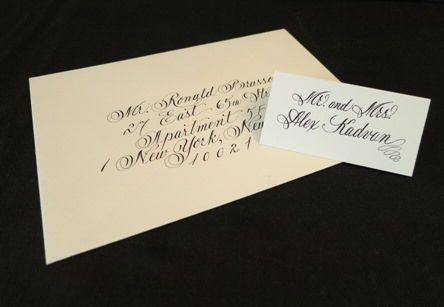 Mr. Ronald Brasso
27 East 65th Str
Apartment 55
New York, New
10021
Mr. and Mrs.
Alex Kadvan